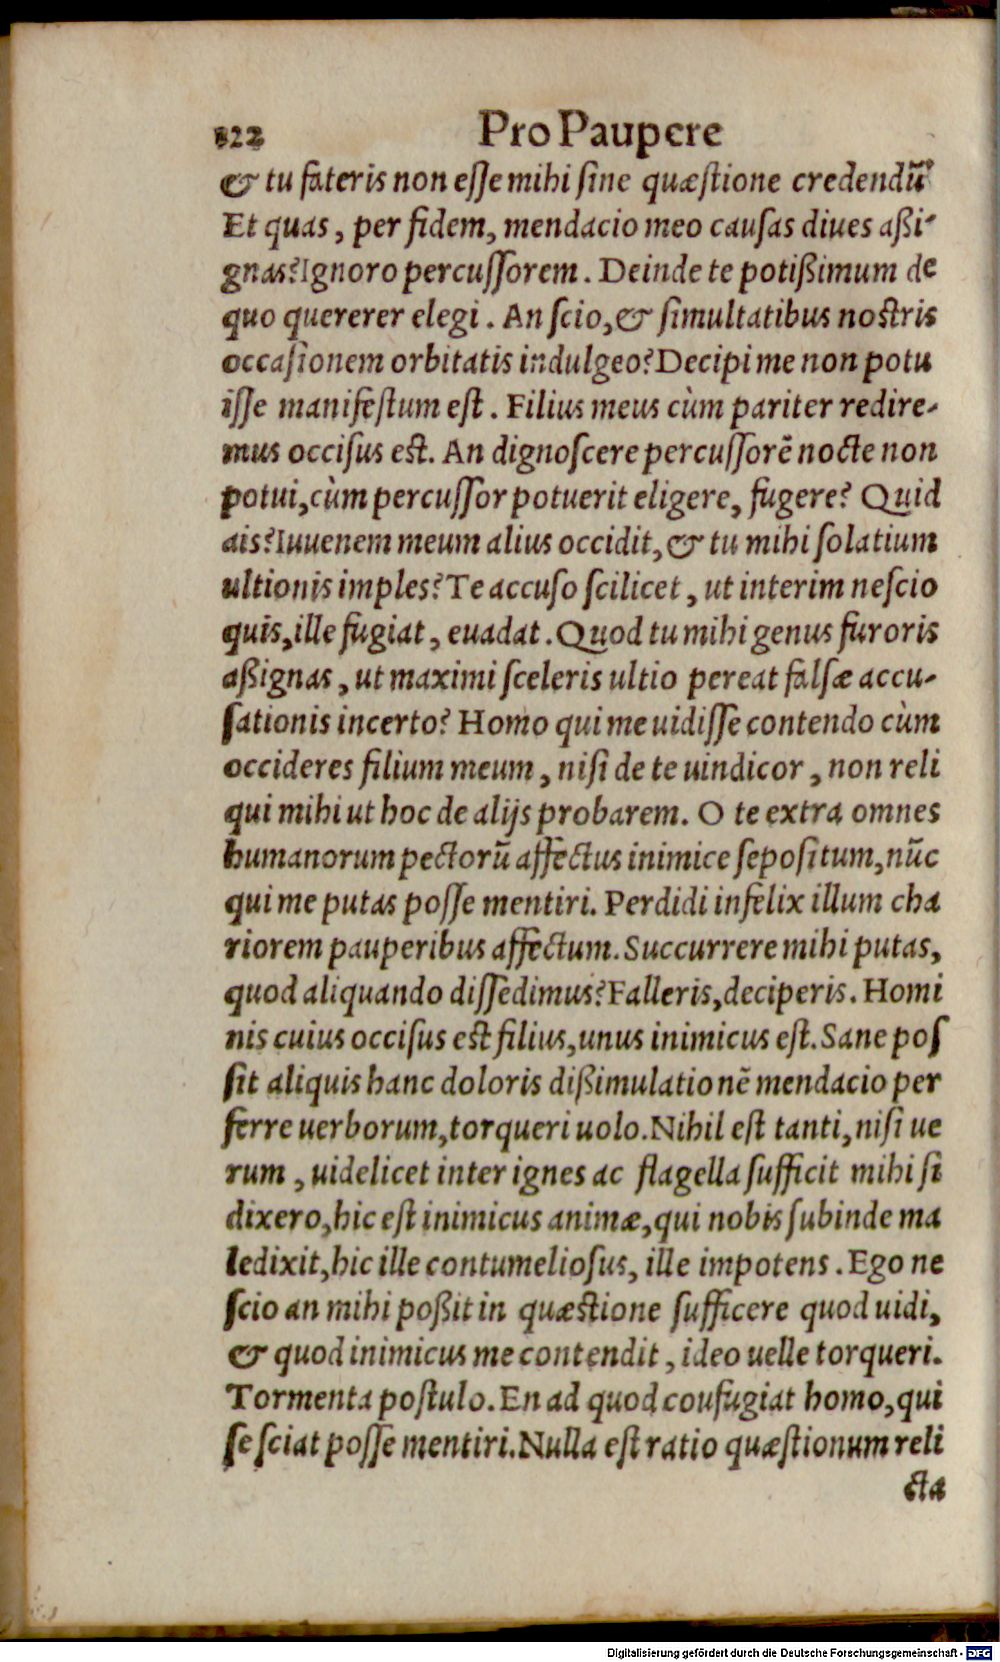 122 Pro Paupere
& tu fateris non esse mihi sine quæstione credendũ?
Et quas, per fidem, mendacio meo causas diues aßi-
gnas? Ignoro percussorem. Deinde te potißimum de
quo quererer elegi. An scio, & simultatibus nostris
occasionem orbitatis indulgeo? Decipi me non potu
isse manifestum est. Filius meus cùm pariter redire-
mus occisus est. An dignoscere percussorẽ nocte non
potui, cùm percussor potuerit eligere, fugere? Quid
ais? Iuuenem meum alius occidit, & tu mihi solatium
ultionis imples? Te accuso scilicet, ut interim nescio
quis, ille fugiat, euadat. Quod tu mihi genus furoris
aßignas, ut maximi sceleris ultio pereat falsæ accu-
sationis incerto? Homo qui me uidisse contendo cùm
occideres filium meum, nisi de te uindicor, non reli
qui mihi ut hoc de alijs probarem. O te extra omnes
humanorum pectorũ affectus inimice sepositum, nũc
qui me putas posse mentiri. Perdidi infelix illum cha
riorem pauperibus affectum. Succurrere mihi putas,
quod aliquando dissedimus? Falleris, deciperis. Homi
nis cuius occisus est filius, unus inimicus est. Sane pos
sit aliquis hanc doloris dißimulationẽ mendacio per
ferre uerborum, torqueri uolo. Nihil est tanti, nisi ue
rum, uidelicet inter ignes ac flagella sufficit mihi si
dixero, hic est inimicus animæ, qui nobis subinde ma
ledixit, hic ille contumeliosus, ille impotens. Ego ne
scio an mihi poßit in quæstione sufficere quod uidi,
& quod inimicus me contendit, ideo uelle torqueri.
Tormenta postulo. En ad quod coufugiat homo, qui
se sciat posse mentiri. Nulla est ratio quæstionum reli
cta
Digitalisierung gefördert durch die Deutsche Forschungsgemeinschaft - DFG